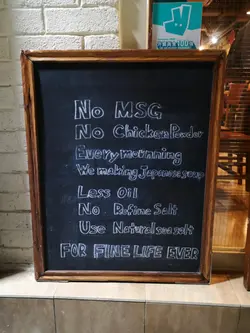 No MSG
No Chicken Powder
Every mornning
We making Japanese soup
Less Oil
No Refine Salt
Use Natural sea salt
FOR FINE LIFE EVER